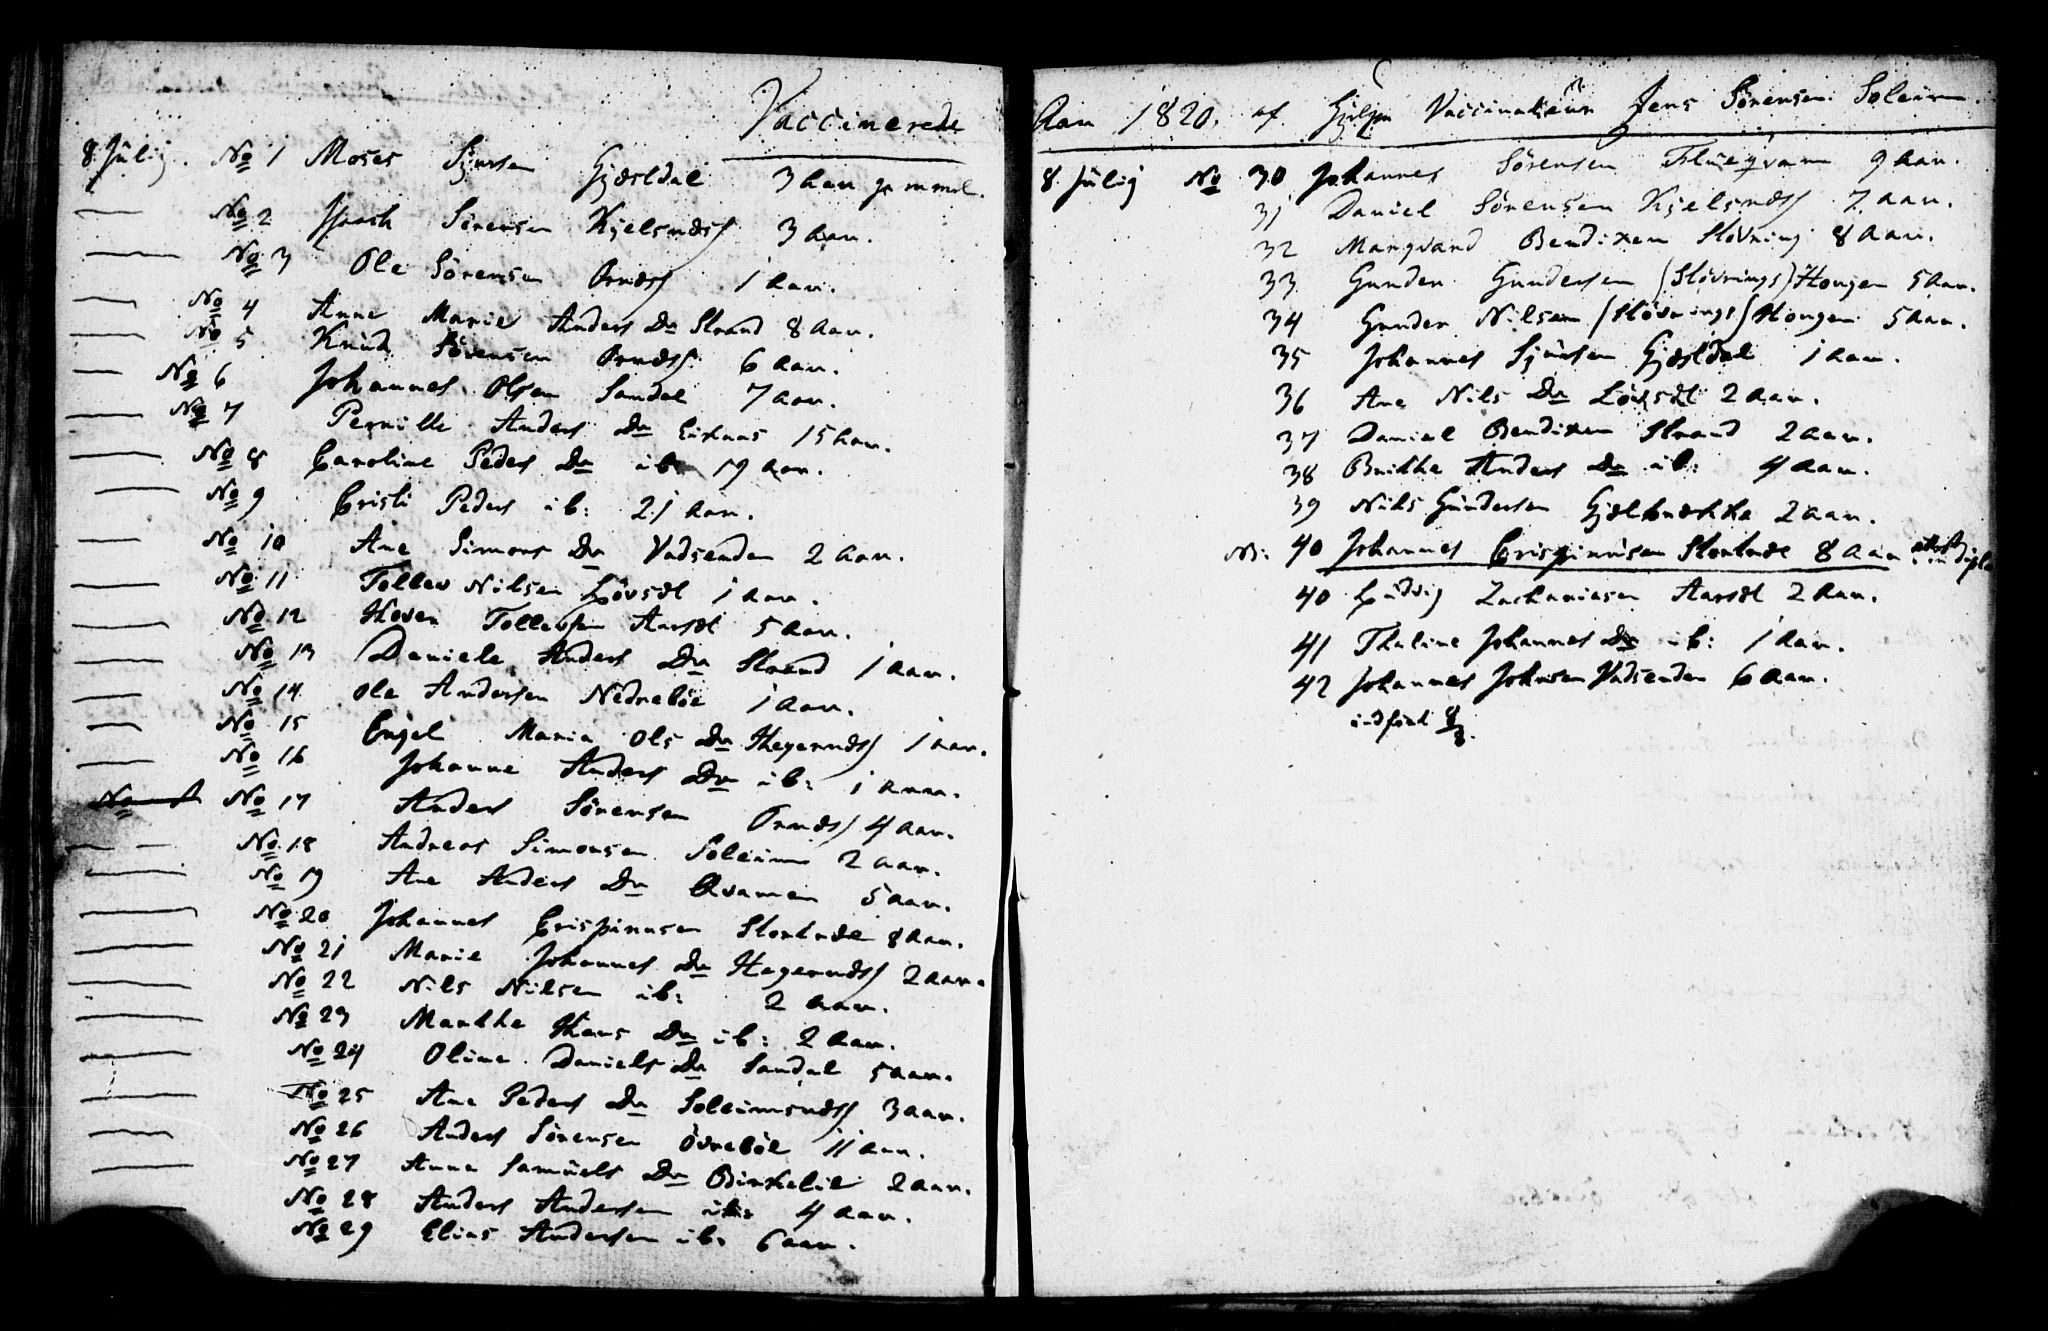 Vaccinerede
8. Jülij. No 1 Moses Sjursen Gjesldal 3 Aar gammel.
No 2 Sørensen Kjelsnæss 3 Aar.
No 3 Ole Sörensen Ornæss 1 Aar.
No 4 Anne Marie Anders Dr Strand 8 Aar.
No 5 Knud Sörensen Ornæss 6 Aar.
No 6 Johannes Olsen Sandal 7 Aar.
No 7 Pernille Anders Dr Eiknas 15 Aar.
No 8 Caroline Peders Dr ib: 19 Aar.
No 9 Cristi Peders ib: 21 Aar.
No 10 Ane Simons Dr Vadsenden 2 Aar.
No 11 Tollev Nilsen Lövsæt 1 Aar.
No 12 Tollevsen Aarsæt 5 Aar.
No 13 Daniele Anders Dr Strand 1 Aar.
No 14 Ole Andersen Nedreböe 1 Aar.
No 15 Engel Maria Ols Dr Hegernæss 1 Aar.
No 16 Johanne Anders Dr ib: 1 Aar.
No 17 Anders Sörensen Ornæss 4 Aar.
No 18 Andreas Simonsen Soleim 2 Aar.
No 19 Ane Anders Dr Qvamen 5 Aar.
No 20 Johannes Crispinusen Stoulade 8 Aar.
No 21 Marie Johannes Dr Hegernæss 2 Aar.
No 22 Nils Nilsen ib: 2 Aar.
No 23 Marthe Hans Dr ib: 2 Aar.
No 24 Oline Daniels Dr Sandal 5 Aar.
No 25 Ane Peders Dr Soleimsnæss 3 Aar.
No 26 Anders Sörensen Övreböe 11 Aar.
No 27 Anne Samüels Dr Birkelie 2 Aar.
No 28 Anders Andersen ib: 4 Aar.
No 29 Elias Andersen ib: 6 Aar.
Aar 1820. af Hjelpe Vaccinateür Jens Sörensen Soleim.
8. Jülij No 30 Johannes Sörensen Flüeqvam 9 Aar.
31 Daniel Sörensen Kjelsnæss 7 Aar.
32 Marqvard Bendixen Stövring 8 Aar.
33 Gunder Gundersen (Stövrings) Hougen 5 Aar.
34 Gunder Nilsen (Stövrings) Hougen 5 Aar.
35 Johannes Sjürsen Gjesldal 1 Aar.
36 Ane Nils Dr Lövsæt 2 Aar.
37 Daniel Bendixen Strand 2 Aar.
38 Brithe Anders Dr ib: 4 Aar.
39 Nils Gündersen Gjelbrække 2 Aar.
NB: 40 Johannes Crispinüsen Stoulade 8 Aar
40 Lüdvig Zachariasen Aarsæt 2 Aar.
41 Thaline Johannes Dr ib: 1 Aar.
42 Johannes Johnsen Vadsenden 6 Aar.
indført 8/8.